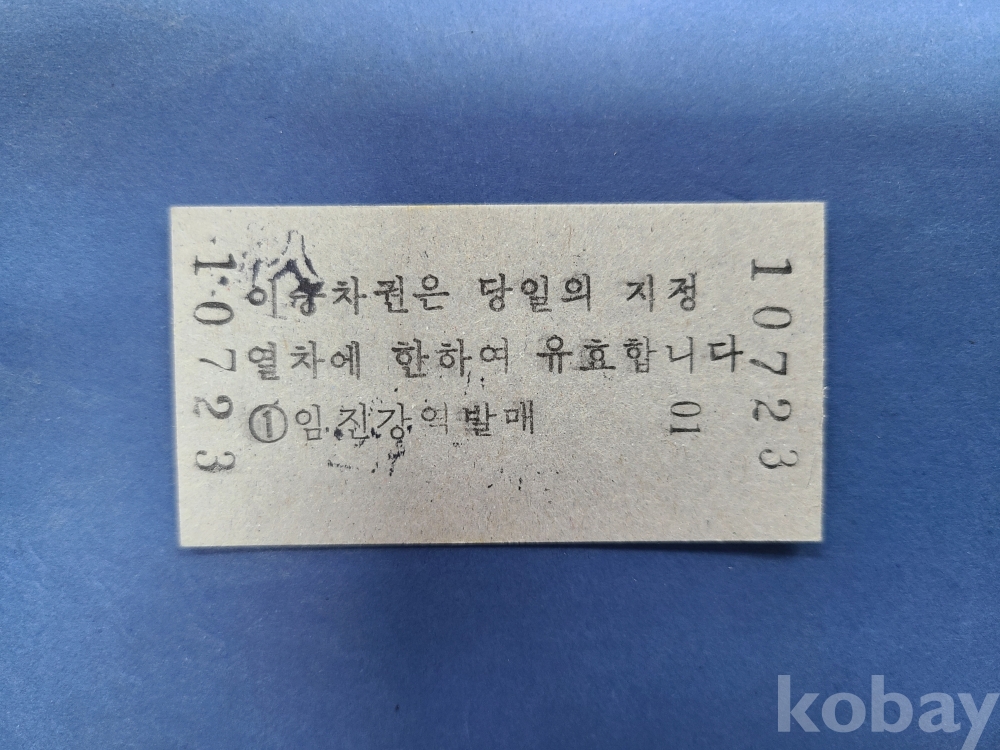 이승차권은 당일의 지정
열차에 한하여 유효합니다
①임진강역발매 01
10723
10723
kobay